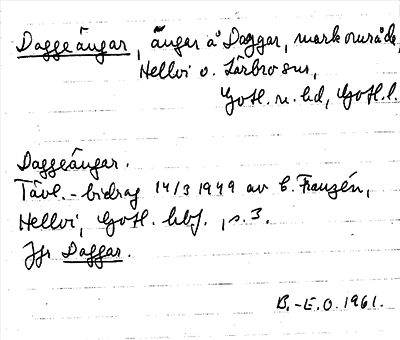 Daggeängar, ängar å Daggar, markområde,
Hellvi o. Lärbro snr,
Gotl. n. hd, Gotl. l.
Daggeängar.
Tävl.-bidrag 14/3 1949 av E. Franzén,
Hellvi, Gotl. hbf., s. 3.
Jfr Daggar.
B.-E.O. 1961.